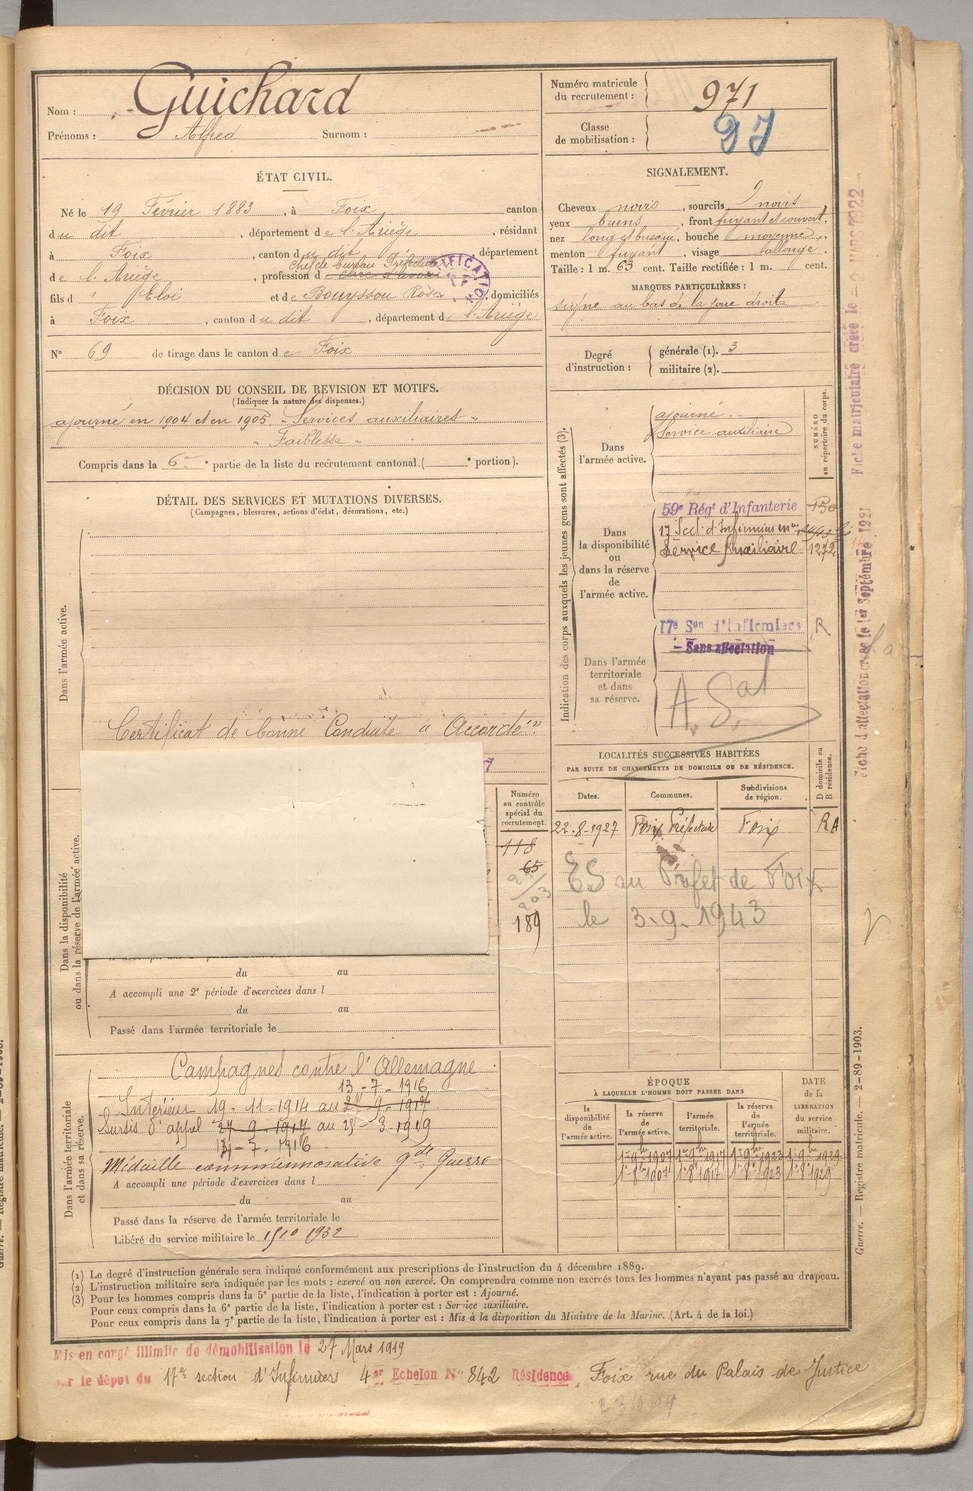 Nom : Guichard
Prénoms : Alfred Surnom :
Numéro matricule du recrutement : 971
Classe de mobilisation : 97
ÉTAT CIVIL.
Né le 19 Février 1883, à Foix canton
du dit, département de l'Ariège, résidant
à Foix, canton du dit, département
Chef de bureau Préfecture
de l'Ariège, profession d
fils d' Eloi et de Bouyssou Rose, domiciliés
à Foix, canton du dit, département de l'Ariège
N° 69 de tirage dans le canton de Foix
DÉCISION DU CONSEIL DE REVISION ET MOTIFS.
(Indiquer la nature des dispenses.)
ajourné en 1904 et en 1905 - Services auxiliaires -
- Faiblesse -
Compris dans la 6e partie de la liste du recrutement cantonal. ( e portion).
DÉTAIL DES SERVICES ET MUTATIONS DIVERSES.
(Campagnes, blessures, actions d'éclat, décorations, etc.)
Dans l'armée active.
Certificat de bonne Conduite "Accordé"
7
Dans la disponibilité
ou dans la réserve de l'armée active.
Numéro
au contrôle
spécial du
recrutement.
118
65
203
189
du au
A accompli une 2e période d'exercices dans l
du au
Passé dans l'armée territoriale le
Dans l'armée territoriale
et dans sa réserve.
Campagnes contre l'Allemagne
13-7-1916
Intérieur 19-11-1914 au 27-9-1917
Sursis d'appel 27-9-1917 au 25-3-1919
14-7-1916
Médaille commémorative Gde Guerre
A accompli une période d'exercices dans l
du au
Passé dans la réserve de l'armée territoriale le
Libéré du service militaire le 15 10 1932
SIGNALEMENT.
Cheveux noirs, sourcils noirs
yeux bruns, front fuyant et ouvert,
nez long et busqué, bouche moyenne,
menton fuyant, visage allongé
Taille : 1 m. 63 cent. Taille rectifiée : 1 m. cent.
MARQUES PARTICULIÈRES :
signe au bas de la joue droite
Degré d'instruction :
générale (1). 3
militaire (2).
Indication des corps auxquels les jeunes gens sont affectés (3).
NUMÉRO
au répertoire du corps.
Dans
l'armée active.
ajourné
Service auxiliaire
Dans
la disponibilité
ou
dans la réserve
de
l'armée active.
59e Régt d'Infanterie
17 Sect. d'Infirmiers mres
Service Auxiliaire 1272
Dans l'armée
territoriale
et dans
sa réserve.
17e Son d'Infirmiers R
Sans affectation
A. S.
LOCALITÉS SUCCESSIVES HABITÉES
PAR SUITE DE CHANGEMENTS DE DOMICILE OU DE RÉSIDENCE.
Dates. Communes. Subdivisions de région. D domicile ou R résidence.
22-8-1927 Foix Préfecture Foix RA
ES au Préfet de Foix
le 3-9-1943
ÉPOQUE
À LAQUELLE L'HOMME DOIT PASSER DANS
DATE
de la
LIBÉRATION
du service
militaire.
la disponibilité de l'armée active.
la réserve de l'armée active.
l'armée territoriale.
la réserve de l'armée territoriale.
1er 9bre 1907 1er 9bre 1917 1er 9bre 1923 1er 9bre 1929
1er 8 1907 1er 8 1917 1er 8 1923 1er 8 1929
(1) Le degré d'instruction générale sera indiqué conformément aux prescriptions de l'instruction du 4 décembre 1889.
(2) L'instruction militaire sera indiquée par les mots : exercé ou non exercé. On comprendra comme non exercés tous les hommes n'ayant pas passé au drapeau.
(3) Pour les hommes compris dans la 5e partie de la liste, l'indication à porter est : Ajourné.
Pour ceux compris dans la 6e partie de la liste, l'indication à porter est : Service auxiliaire.
Pour ceux compris dans la 7e partie de la liste, l'indication à porter est : Mis à la disposition du Ministre de la Marine. (Art. 4 de la loi.)
Mis en congé illimité de démobilisation le 27 Mars 1919
par le dépôt du 17e section d'Infirmiers 4e Echelon N° 842 Résidence Foix rue du Palais de Justice
Fiche matriculaire créée le 1922
Fiche d'affectation créée le 1er Septembre 1921
Guerre. — Registre matricule. — 2-89-1903.